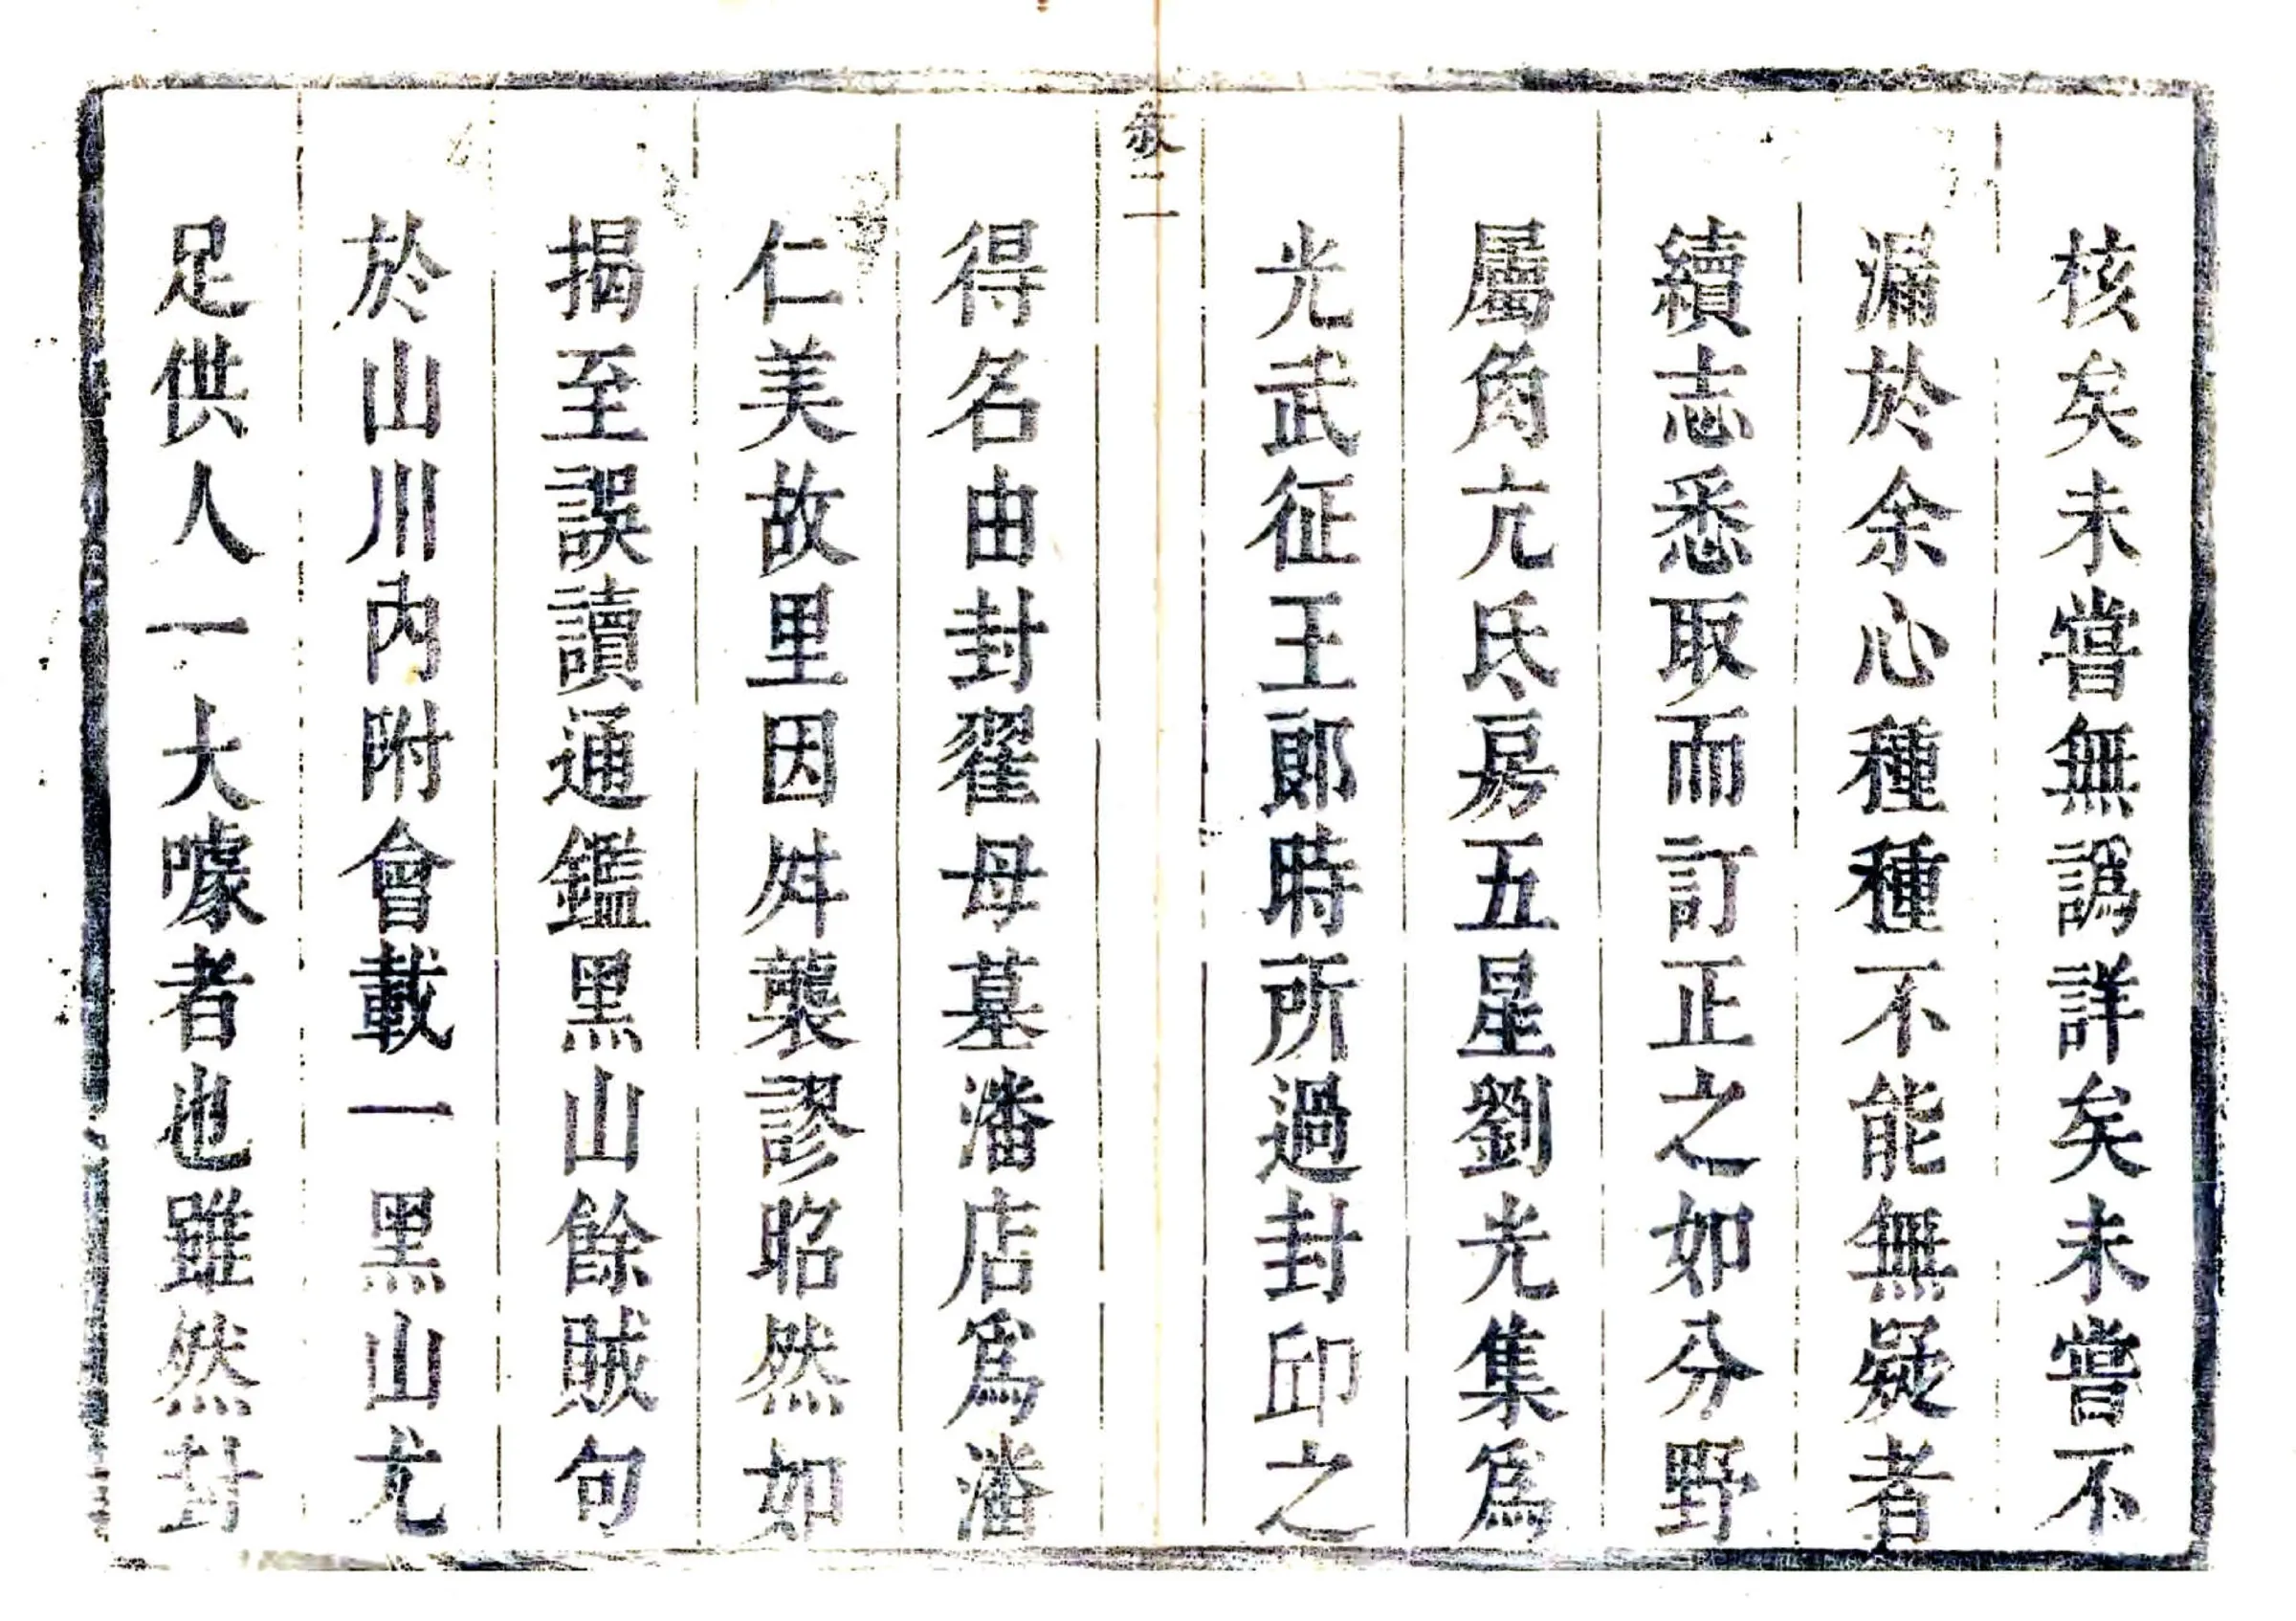 核矣未嘗無譌詳矣未嘗不
漏於余心種種不能無疑者
續志悉取而訂正之如分野
屬角亢氐房五星劉光集爲
光武征王郎時所過封邱之
叙二
得名由封翟母墓潘店爲潘
仁美故里因舛襲謬昭然如
揭至誤讀通鑑黑山餘賊句
於山川內附會載一黑山尤
足供人一大噱者也雖然封